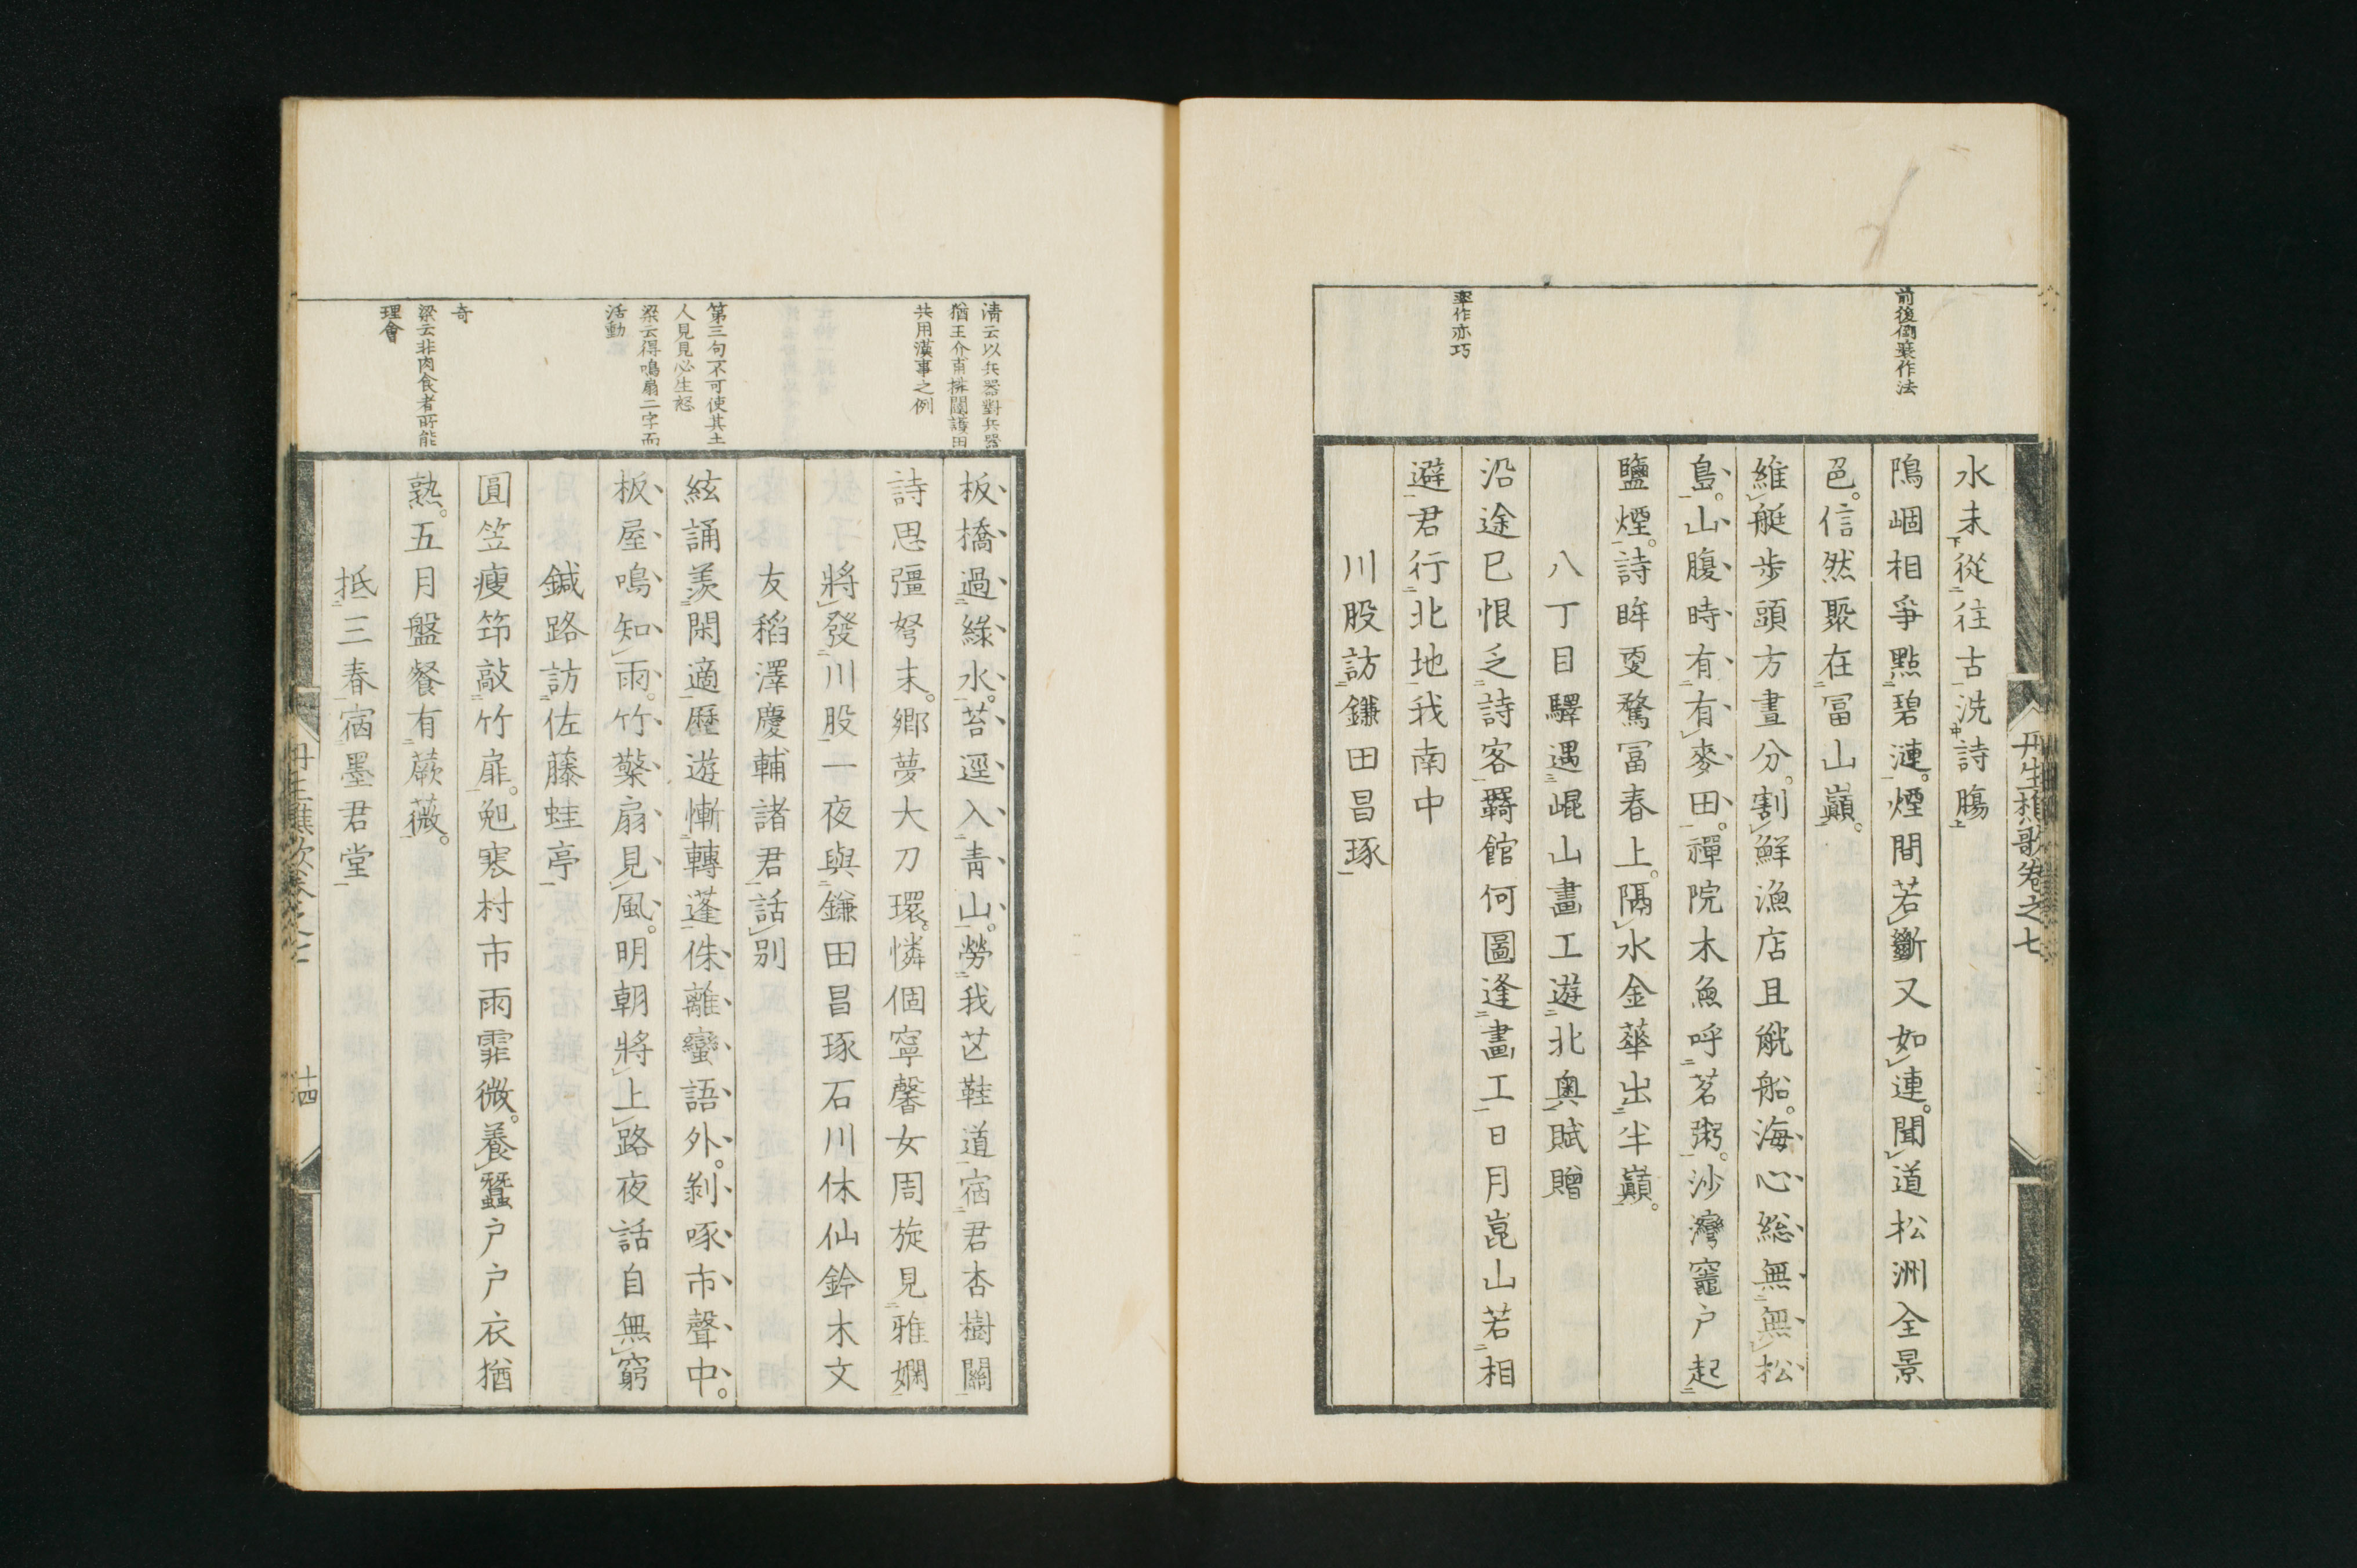 前後倒裝作法
率作亦巧
水未從往古洗詩膓
隝崓相爭點碧漣。煙間若斷又如連。聞道松洲全景
邑。信然聚在冨山巔。
維艇步頭方晝分。割鮮漁店且觥船。海心総無無松
島。山腹時有有麥田。禪院木魚呼茗粥。沙灣竈戶起
鹽煙。詩眸耍騖冨春上。隔水金華出半巔。
八丁目驛遇崐山畫工遊北奥賦贈
沿途已恨乏詩客羇館何圖逢畫工日月崑山若相
避君行北地我南中
川股訪鎌田昌琢
丹生樵歌卷之七
清云以兵器對兵器
猶王介甫排闥護田
共用漢事之例
第三句不可使其土
人見見必生怒
梁云得鳴扇二字而
活動
奇
梁云非肉食者所能
理會
板橋過綠水。苔逕入青山。勞我芒鞋道宿君杏樹關
詩思彊弩末。鄉夢大刀環。憐個寧馨女周旋見雅嫻
將發川股一夜與鎌田昌琢石川休仙鈴木文
友稻澤慶輔諸君話別
絃誦羨閑適歷遊慚轉蓬侏離蠻語外。剝啄市聲中。
板屋鳴知雨。竹檠扇見風。明朝將上路夜話自無窮
鍼路訪佐藤蛙亭
圓笠瘦筇敲竹扉。兔寒村市雨霏微。養蠶戶戶衣猶
熟。五月盤餐有蕨薇。
抵三春宿墨君堂
丹生樵歌卷之七
十四